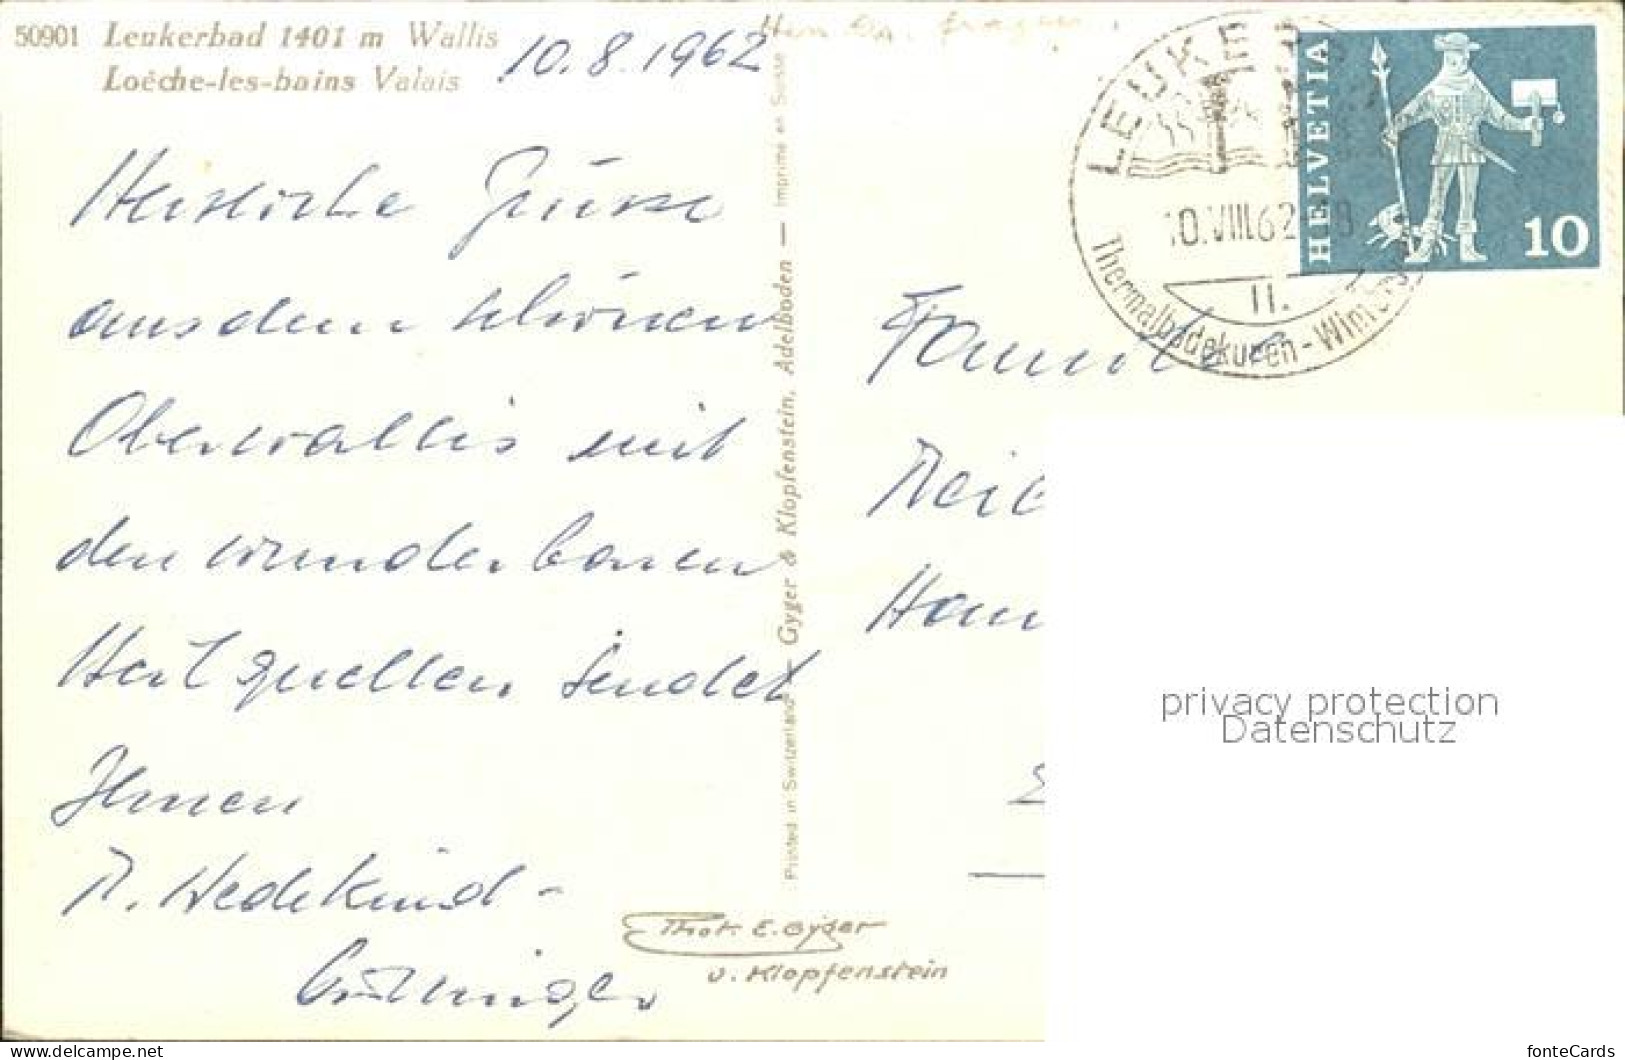 50901 Leukerbad 1401 m Wallis
Loèche-les-bains Valais
10.8.1962
Herzliche Grüsse
aus dem schönen
Oberwallis mit
den wunderbaren
Heilquellen sendet
Ihnen
A. Wedekind-
Printed in Switzerland — Gyger & Klopfenstein, Adelboden — Imprimé en Suisse
Phot. E. Gyger
u. Klopfenstein
LEUKERB
10.VIII.62
II.
Thermalbadekuren - Winter
HELVETIA
10
Familie
privacy protection
Datenschutz
fonteCards
www.delcampe.net